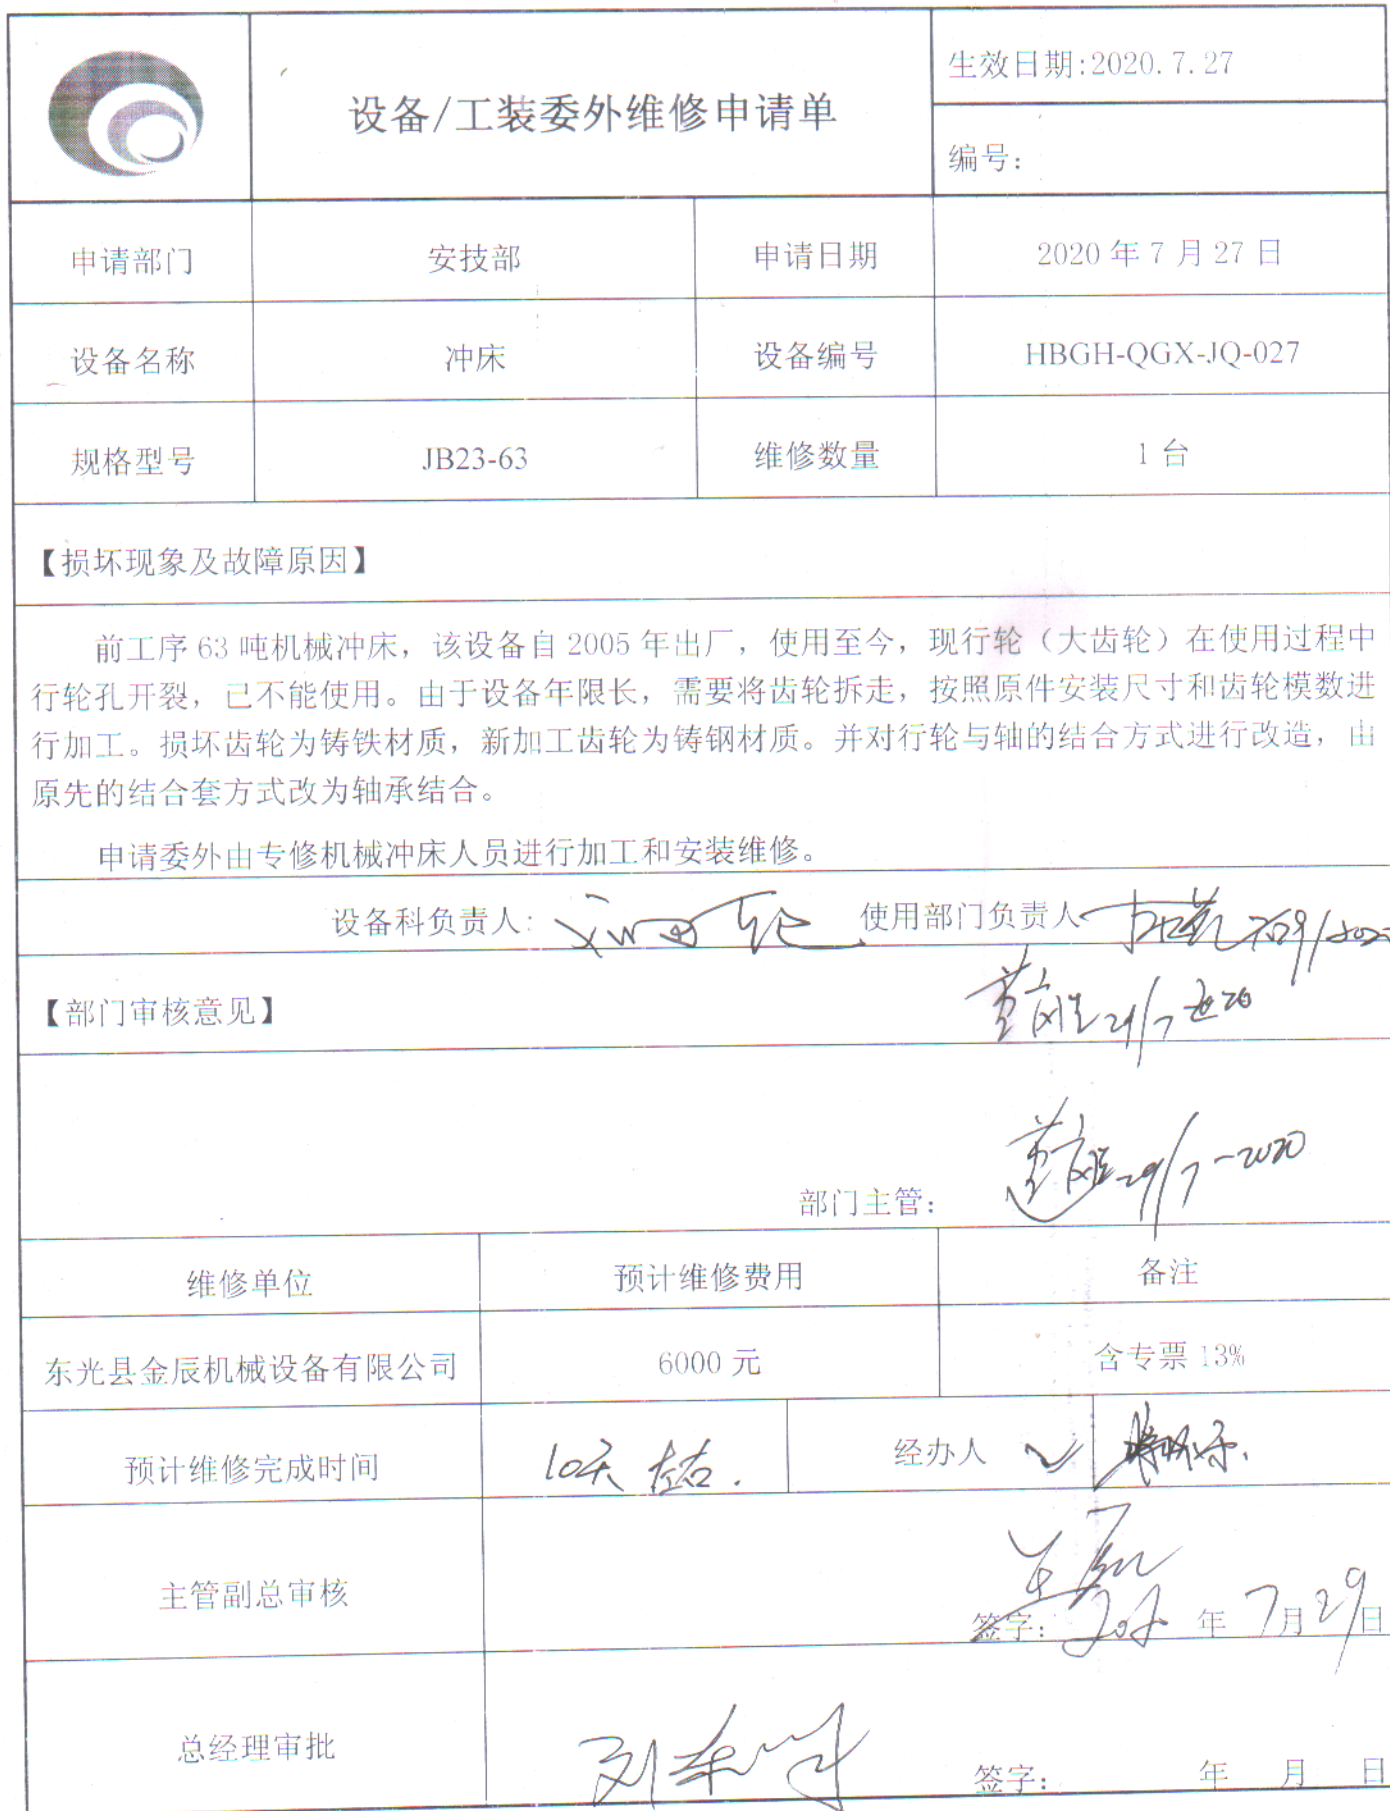 生效日期:2020.7.27
设备/工装委外维修申请单
编号:
申请部门 安技部 申请日期 2020 年 7 月 27 日
设备名称 冲床 设备编号 HBGH-QGX-JQ-027
规格型号 JB23-63 维修数量 1 台
【损坏现象及故障原因】
前工序 63 吨机械冲床，该设备自 2005 年出厂，使用至今，现行轮（大齿轮）在使用过程中
行轮孔开裂，已不能使用。由于设备年限长，需要将齿轮拆走，按照原件安装尺寸和齿轮模数进
行加工。损坏齿轮为铸铁材质，新加工齿轮为铸钢材质。并对行轮与轴的结合方式进行改造，由
原先的结合套方式改为轴承结合。
申请委外由专修机械冲床人员进行加工和安装维修。
设备科负责人: 使用部门负责人
【部门审核意见】
29/7 2020
部门主管: 29/7-2020
维修单位 预计维修费用 备注
东光县金辰机械设备有限公司 6000 元 含专票 13%
预计维修完成时间 10天左右. 经办人
主管副总审核
签字: 年 7 月 29 日
总经理审批
签字: 年 月 日